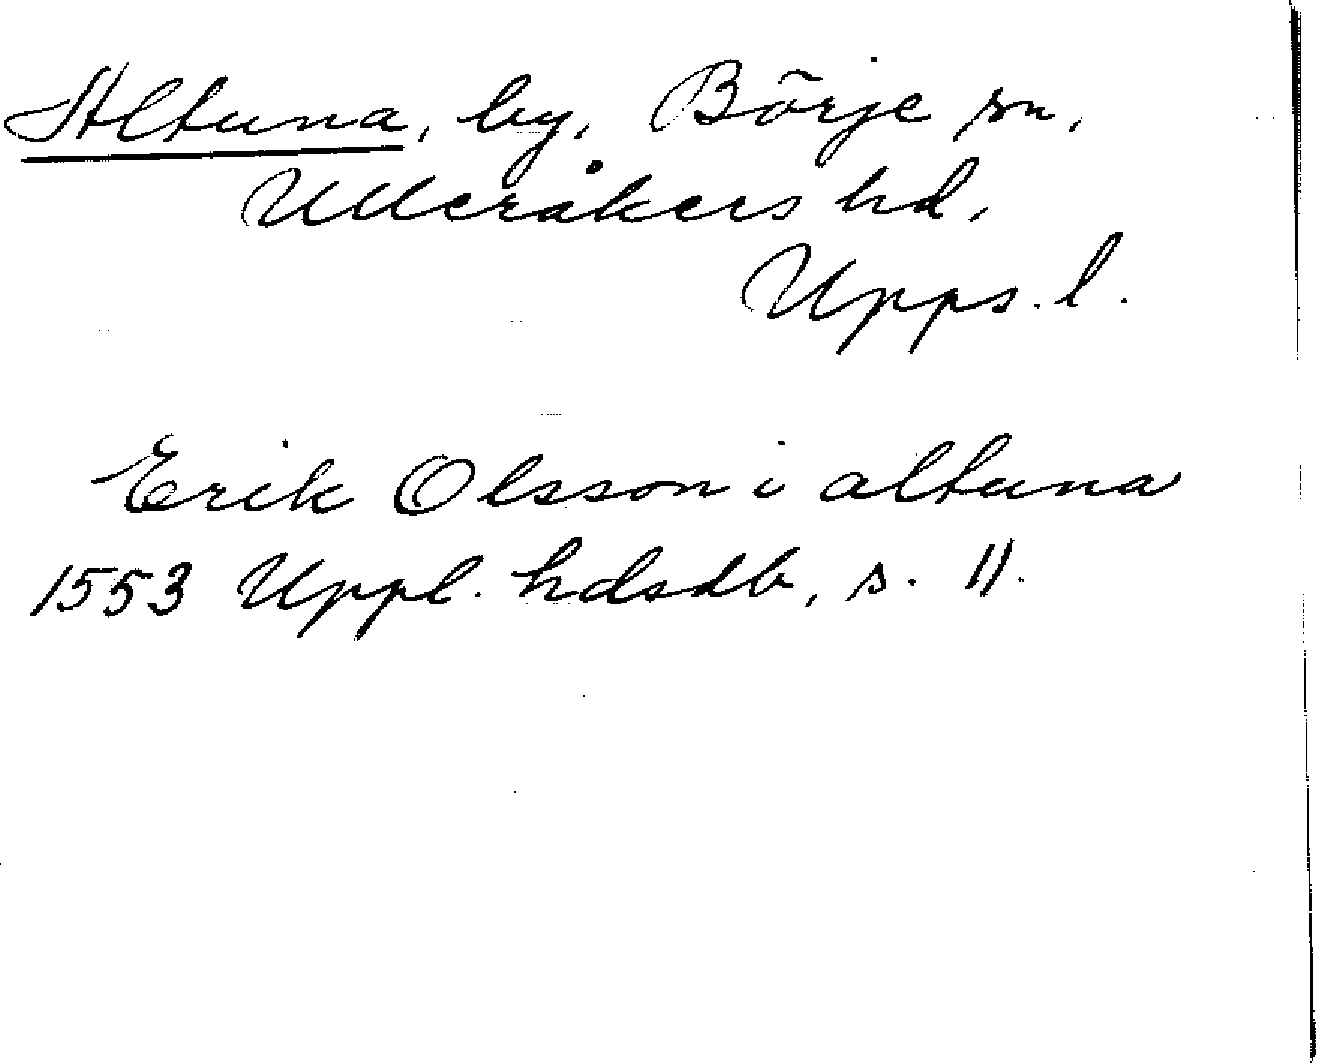 Altuna, by, Börje sn,
Ulleråkers hd,
Upps. l.
Erik Olsson i altuna
1553 Uppl. hdsdb, s. 11.